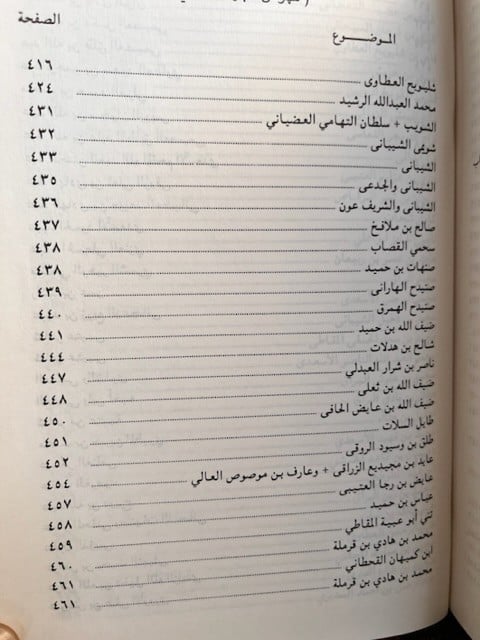 الموضوع
الصفحة
شليويح العطاوى ٤١٦
محمد العبدالله الرشيد ٤٢٤
الشويب + سلطان التهامي العضياني ٤٣١
شويمى الشيبانى ٤٣٢
الشيبانى ٤٣٣
الشيبانى والجدعى ٤٣٥
الشيبانى والشريف عون ٤٣٦
صالح بن ملافخ ٤٣٧
سحمي القصاب ٤٣٨
صنهات بن حميد ٤٣٨
صنيدح الهارانى ٤٣٩
صنيدح الهمرق ٤٤٠
ضيف الله بن حميد ٤٤١
شالح بن هدلات ٤٤٤
ناصر بن شرار العبدلي ٤٤٧
ضيف الله بن ثعلى ٤٤٨
ضيف الله بن عايض الحافى ٤٥٠
طايل السلات ٤٥١
طلق بن وسيود الروقى ٤٥٢
عايد بن مجيديع الزراقى + وعارف بن موصوص العالي ٤٥٤
عايض بن رجا العتيبى ٤٥٧
عباس بن حميد ٤٥٨
ثني أبو عبية المقاطي ٤٥٩
محمد بن هادي بن قرملة ٤٦٠
ابن كميهان القحطاني ٤٦١
محمد بن هادي بن قرملة ٤٦١